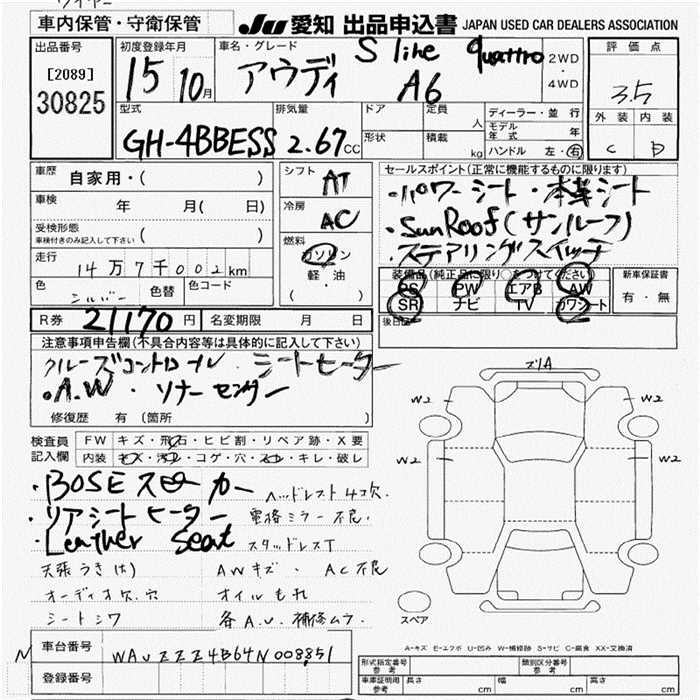 車内保管・守衛保管 JU 愛知 出品申込書 JAPAN USED CAR DEALERS ASSOCIATION
出品番号 初度登録年月 車名・グレード 評価点
[2089] 30825 15 10月 アウディ S line quattro A6 2WD・4WD 3.5
型式 排気量 ドア 定員 人 ディーラー・並行 外装 内装
GH-4BBESS 2.67cc 形状 積載 kg モデル年式 年 C D
ハンドル 左・右
車歴 自家用・( ) シフト AT セールスポイント(正常に機能するものに限ります)
車検 年 月( 日) 冷房 AC ・パワーシート・本革シート
受検形態 ( ) ・SunRoof(サンルーフ)
車検付きのみ記入して下さい 燃料 ガソリン ・ステアリングスイッチ
走行 14万7千002km 軽・油 装備品(純正品に限り○をつけてください) 新車保証書
色 シルバー 色替 色コード ( ) PS PW エアB AW 有・無
SR ナビ TV カワシート
R券 21170円 名変期限 月 日 後日
注意事項申告欄(不具合内容等は具体的に記入して下さい)
クルーズコントロール・シートヒーター
・A.W・ソナーセンサー
修復歴 有 (箇所 )
検査員記入欄 FW キズ・飛石・ヒビ割・リペア跡・X要
内装 キズ・汚レ・コゲ・穴・スレ・キレ・破レ
・BOSEスピーカー ヘッドレスト4コ欠
・リアシートヒーター 電格ミラー不良.
・Leather Seat スタッドレスT
天張うき(小) AWキズ・AC不良
オーディオ欠.穴 オイルもれ
シートシワ 各A.U.補修ムラ.
W2 W2
W2 W2
スペア
A-キズ E-エクボ U-凹み W-補修跡 S-サビ C-腐食 XX-交換済
車台番号 WAUZZZ4B64N008351
登録番号
形式指定番号 参考 類別区分番号 参考
車庫証明用 参考 長さ cm 幅 cm 高さ cm